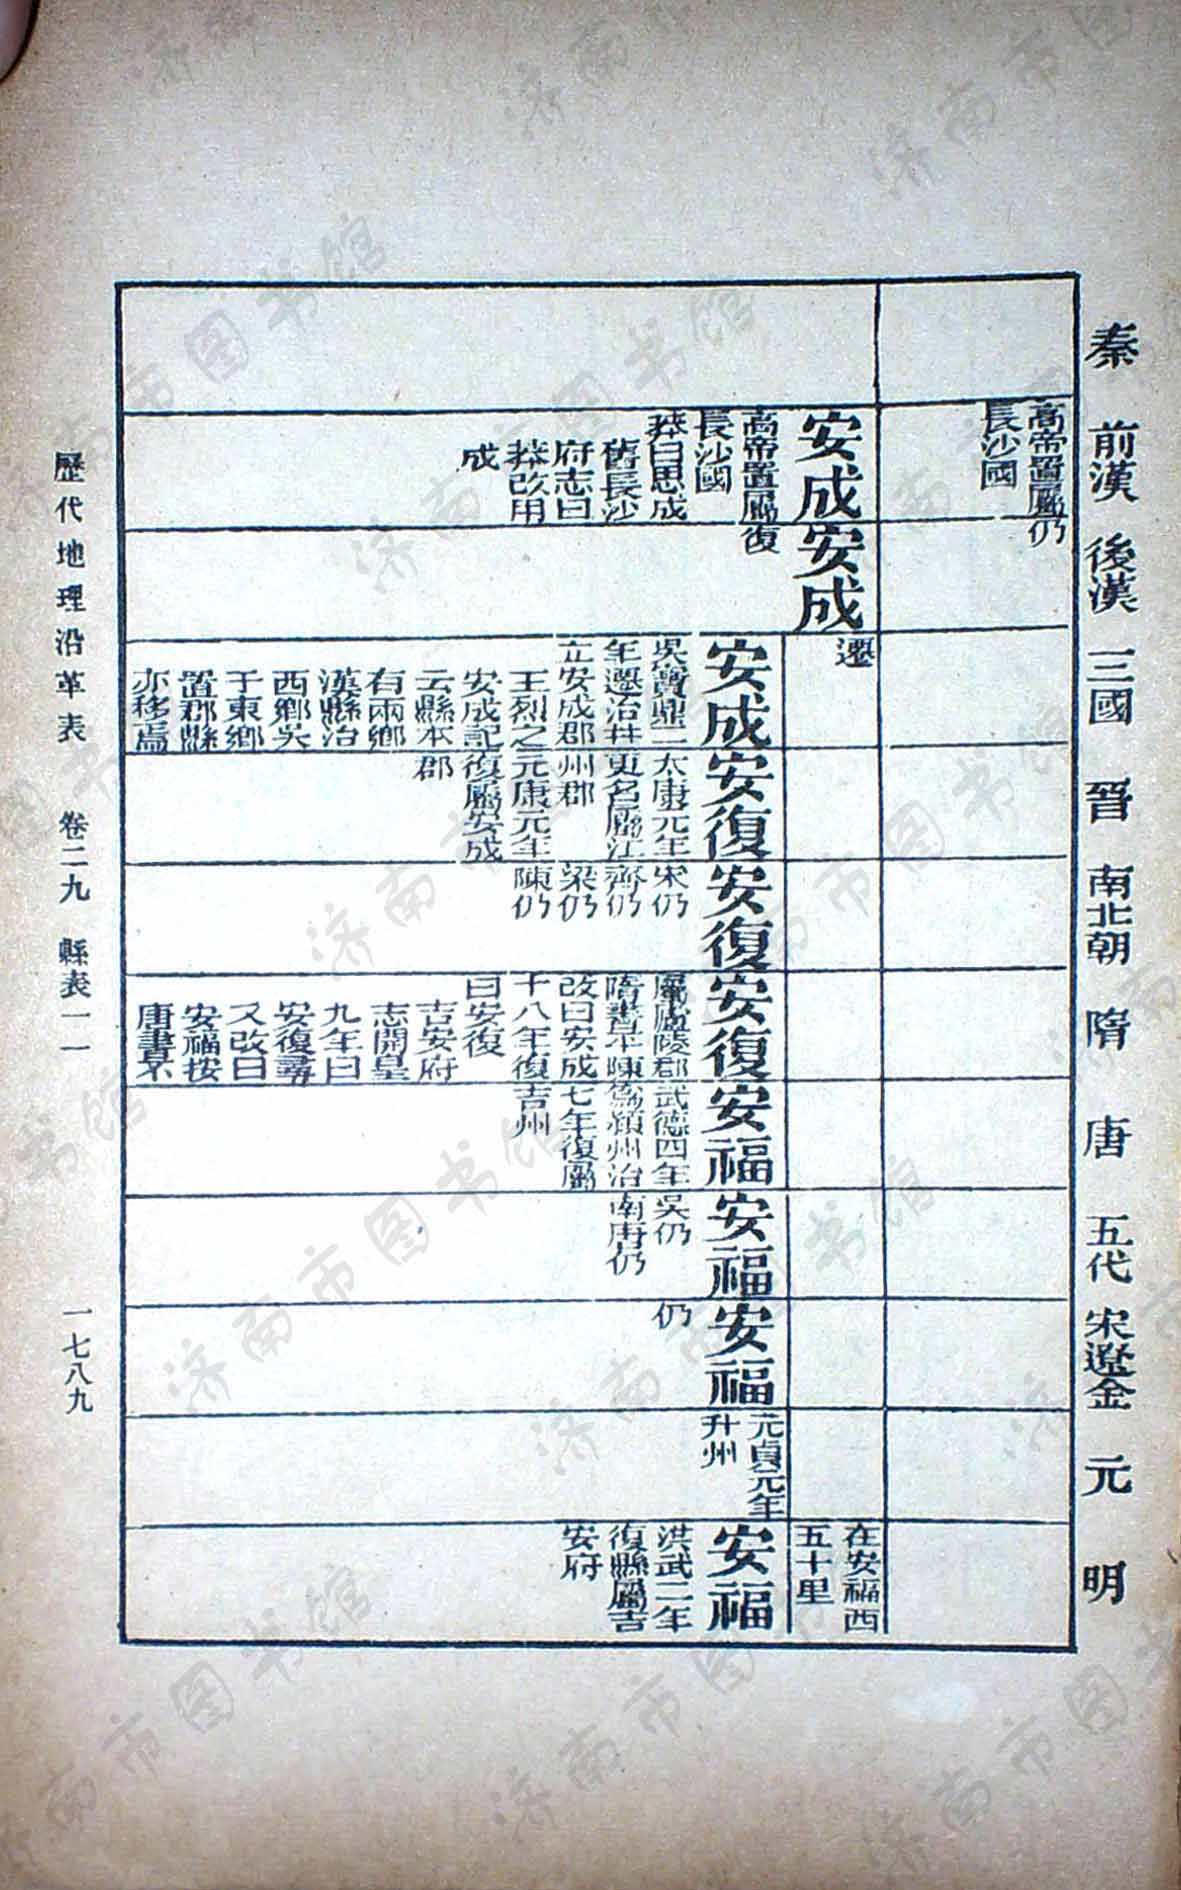 秦　前漢　後漢　三國　晉　南北朝　隋　唐　五代　宋遼金　元　明
高帝置屬
長沙國
仍
安成
高帝置屬
長沙國
莽曰思成
舊長沙
府志曰
莽改用
成
安成
復
遷
在安福西
五十里
安成
吳寶鼎二
年遷治幷
立安成郡
王烈之
安成記
云縣本
有兩鄉
漢縣治
西鄉吳
于東鄉
置郡縣
亦移焉
安復
太康元年
更名屬江
州郡
元康元年
復屬安成
郡
安復
宋仍
齊仍
梁仍
陳仍
安復
屬廬陵郡
隋書平陳
改曰安成
十八年復
曰安復
吉安府
志開皇
九年曰
安復尋
又改曰
安福按
唐書景
安福
武德四年
爲潁州治
七年復屬
吉州
安福
吳仍
南唐仍
安福
仍
元貞元年
升州
安福
洪武二年
復縣屬吉
安府
歷代地理沿革表　卷二九　縣表一一　一七八九
济南市图书馆